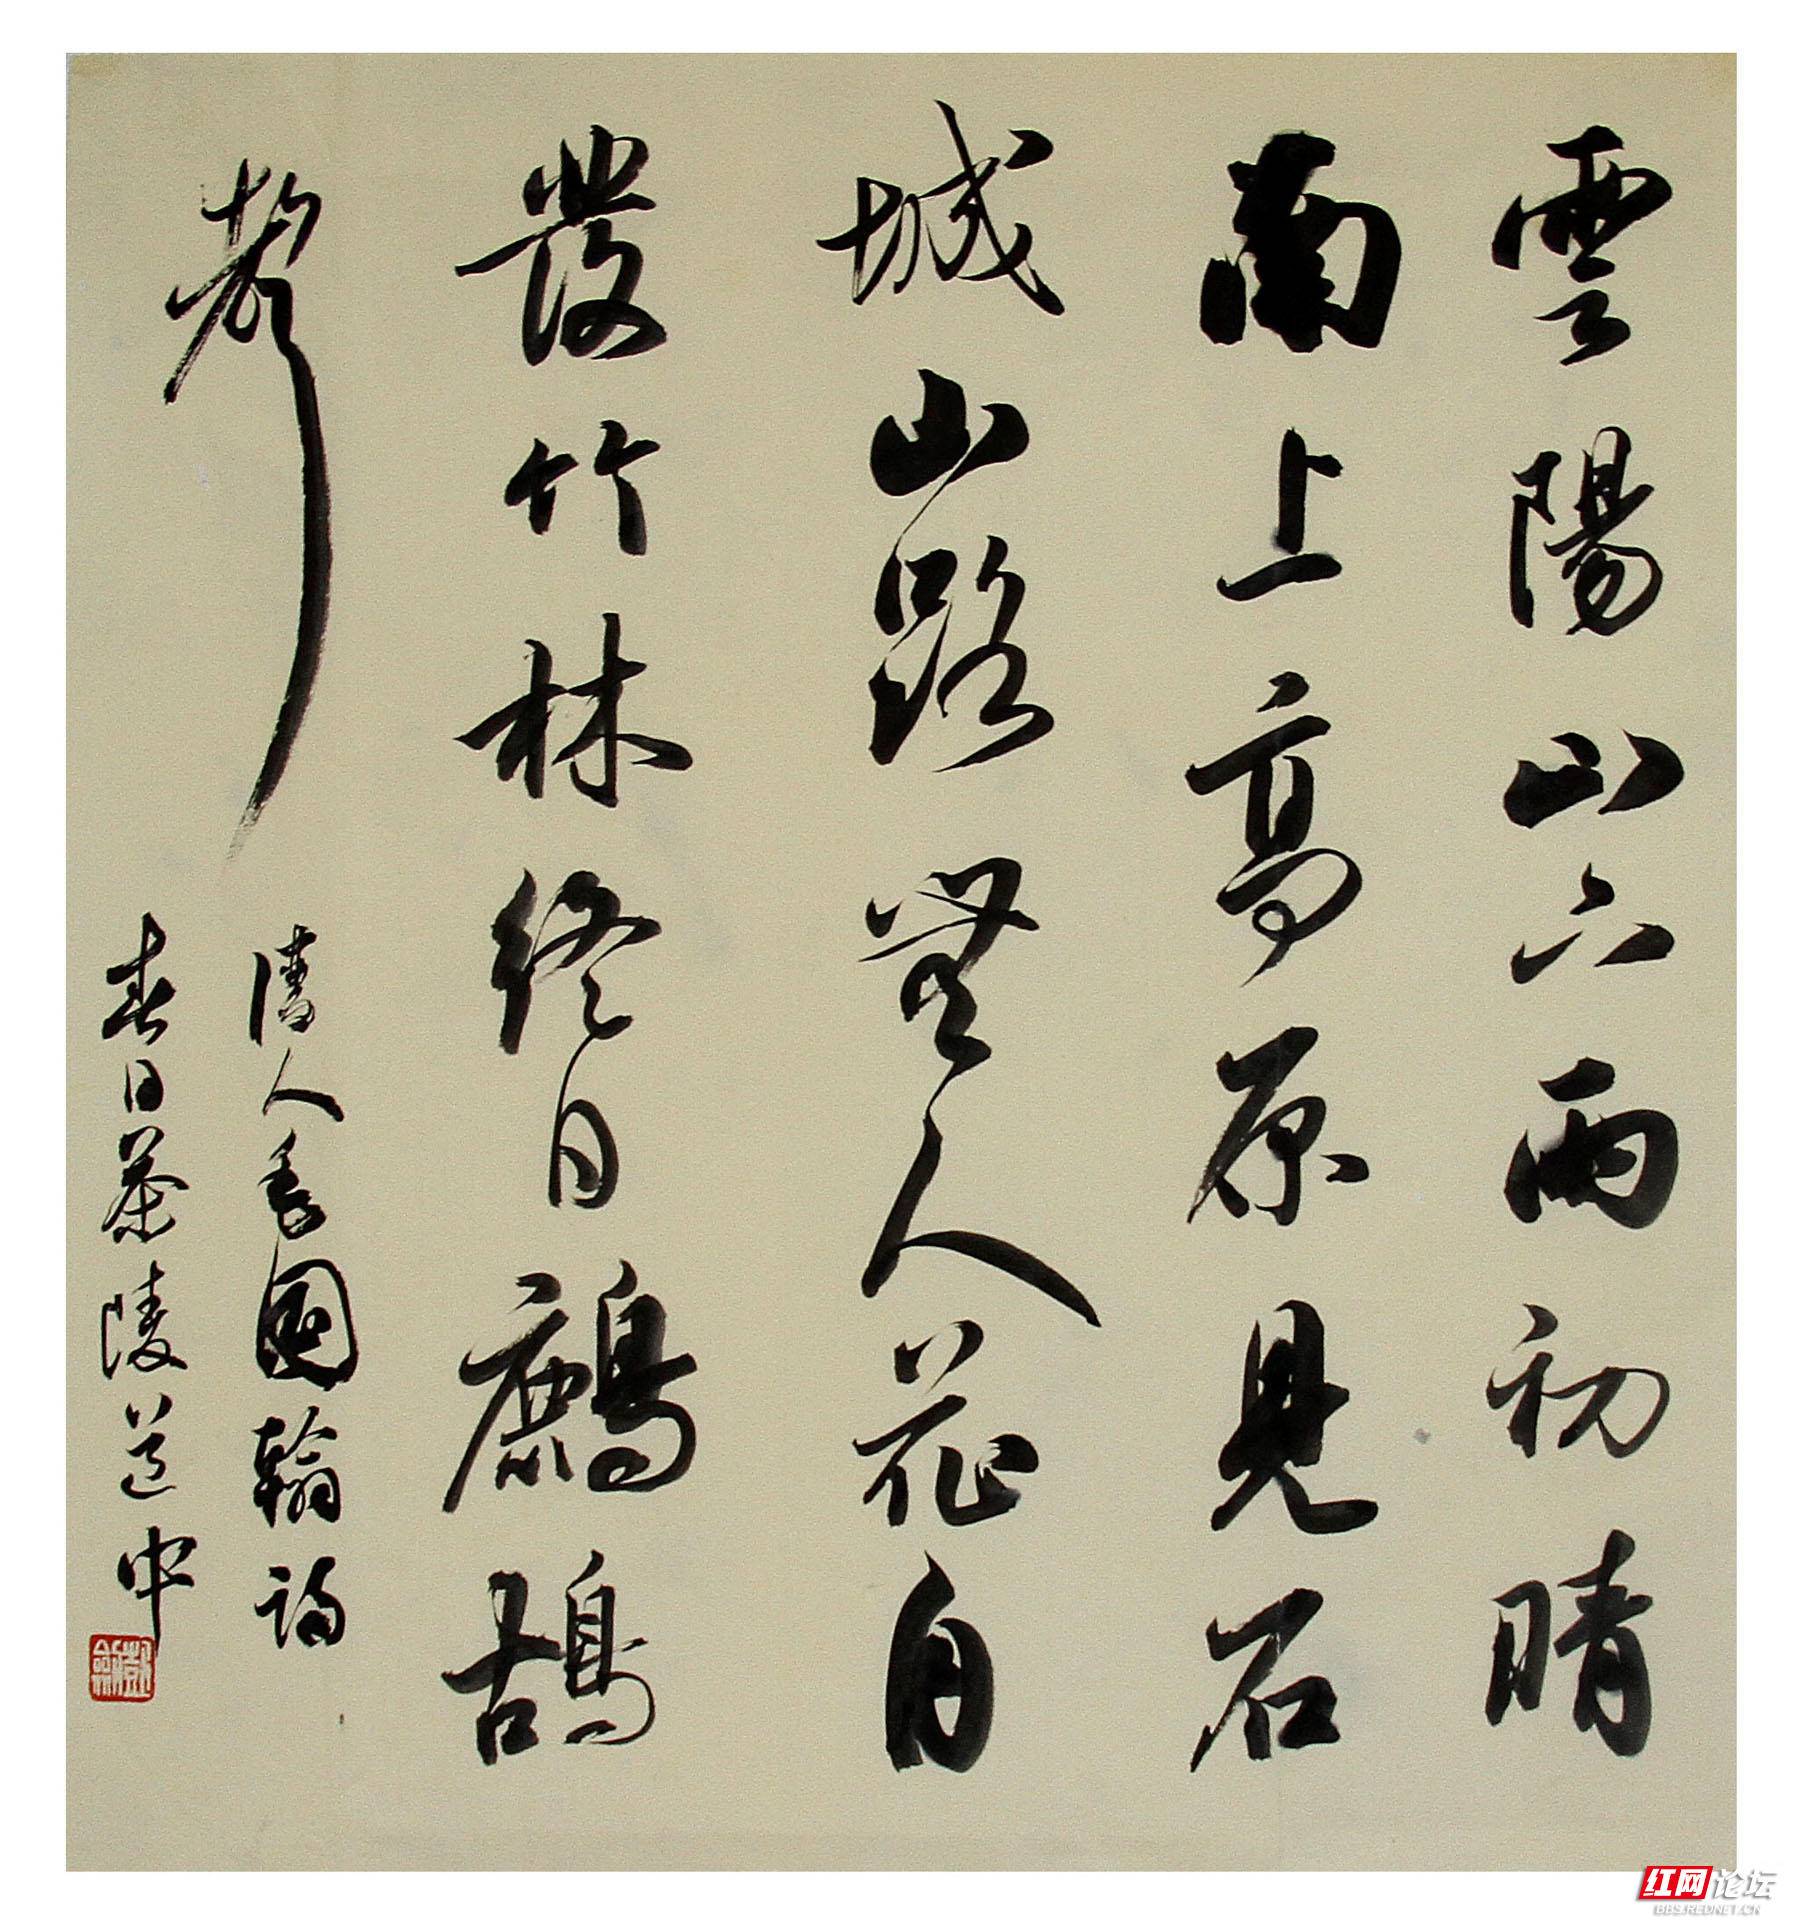 雲陽山下雨初晴
南上高原見石
城山路無人花自
發竹林終日鷓鴣
聲
清人毛國翰詩
春日茶陵道中
红网论坛
BBS.REDNET.CN